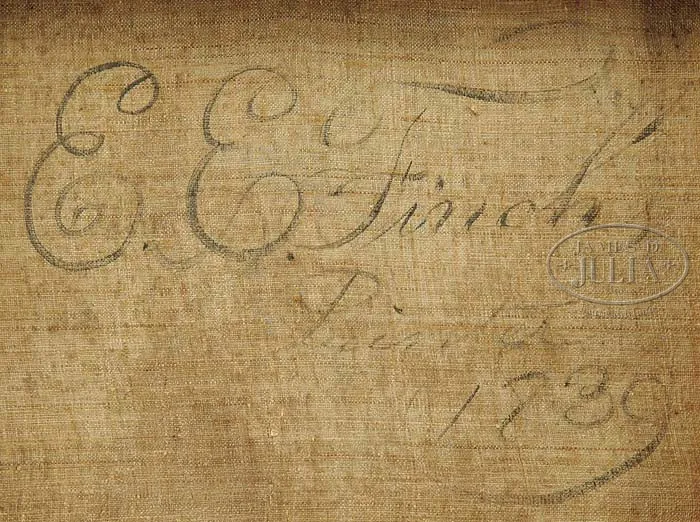 E. E. Finch
Painter
1839
JAMES D.
JULIA